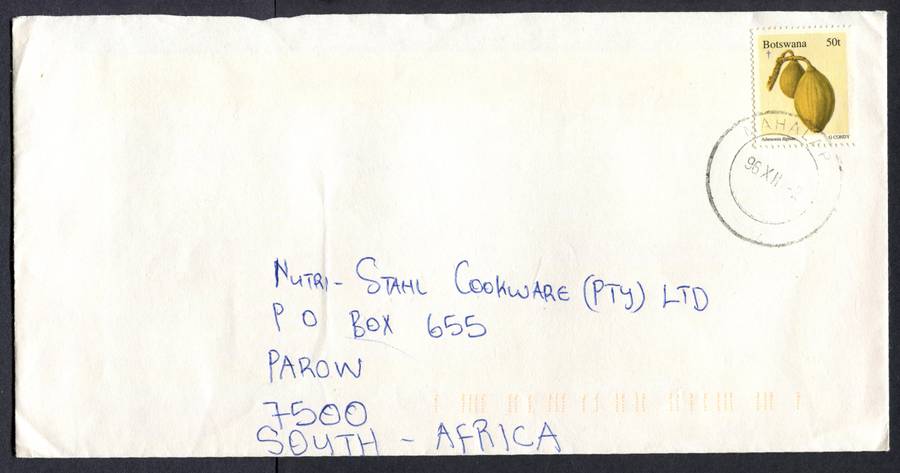 Botswana 50t
Adansonia digitata
G CONDY
96 XII
NUTRI-STAHL COOKWARE (PTY) LTD
P O BOX 655
PAROW
7500
SOUTH-AFRICA